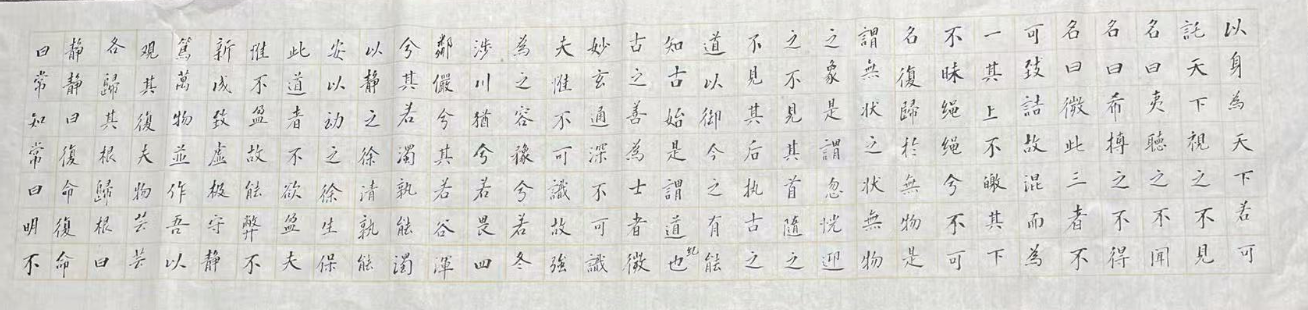 以身為天下若可
託天下視之不見
名曰夷聽之不聞
名曰希搏之不得
名曰微此三者不
可致詰故混而為
一其上不皦其下
不昧绳绳兮不可
名復歸於無物是
謂無状之状無物
之象是謂忽恍迎
之不見其首隨之
不見其后执古之
道以御今之有能
知古始是謂道紀也
古之善為士者微
妙玄通深不可識
夫惟不可識故強
為之容豫兮若冬
涉川猶兮若畏四
鄰儼兮其若谷渾
兮其若濁孰能濁
以静之徐清孰能
安以动之徐生保
此道者不欲盈夫
惟不盈故能弊不
新成致虚极守静
篤萬物並作吾以
觀其復夫物芸芸
各歸其根歸根曰
静静曰復命復命
曰常知常曰明不